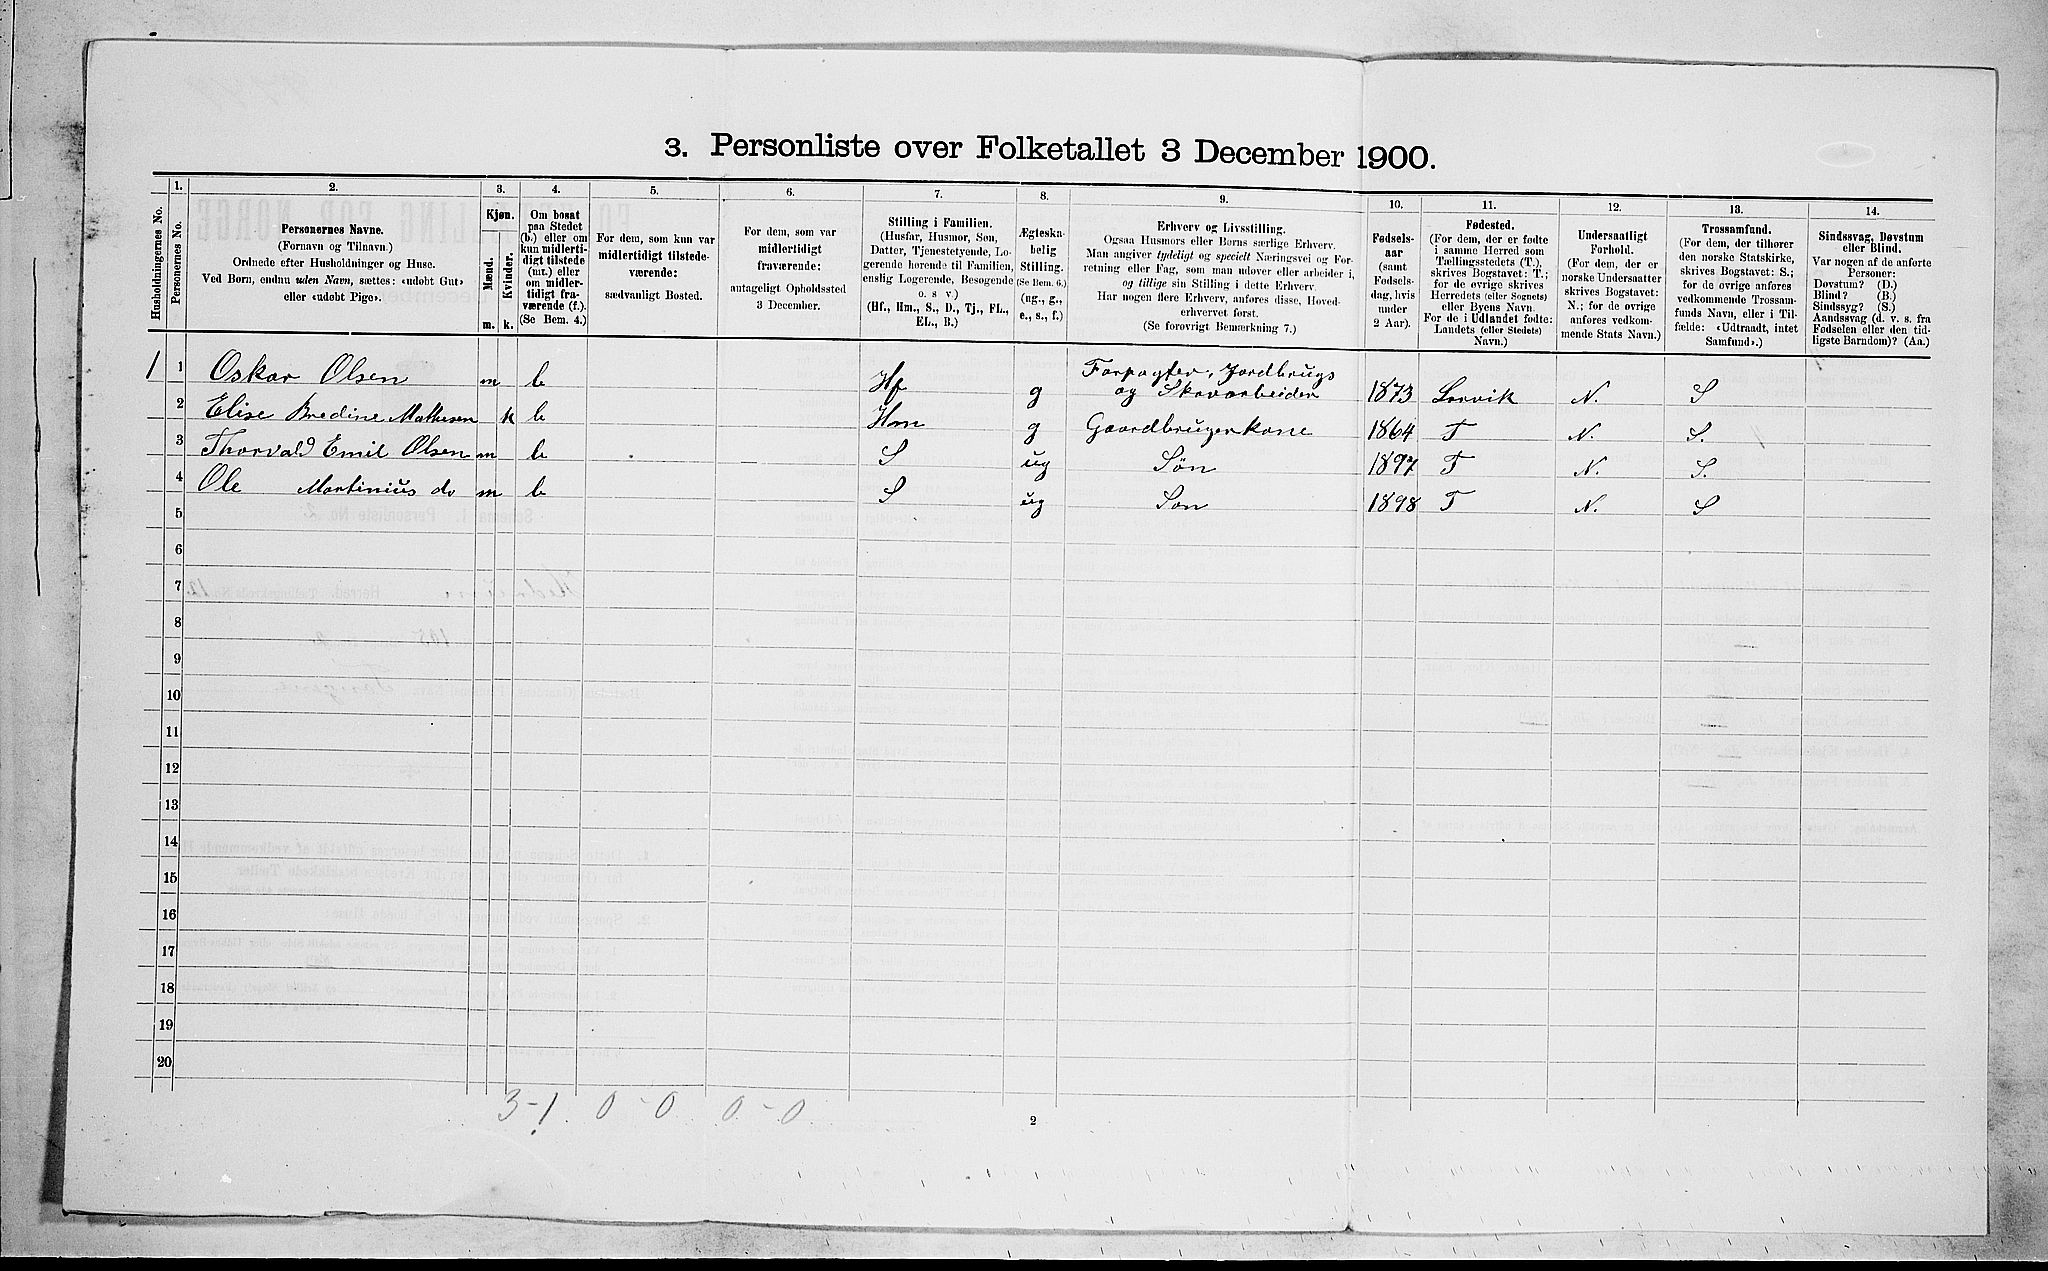 3. Personliste over Folketallet 3 December 1900.
Husholdningernes No.
1. Personernes No.
2. Personernes Navne.
(Fornavn og Tilnavn.)
Ordnede efter Husholdninger og Huse.
Ved Børn, endnu uden Navn, sættes: «udøbt Gut»
eller «udøbt Pige».
3. Kjøn.
Mænd. m.
Kvinder. k.
4. Om bosat
paa Stedet
(b.) eller om
kun midlerti-
digt tilstede
(mt.) eller
om midler-
tidigt fra-
værende (f.).
(Se Bem. 4.)
5. For dem, som kun var
midlertidigt tilstede-
værende:
sædvanligt Bosted.
6. For dem, som var
midlertidigt
fraværende:
antageligt Opholdssted
3 December.
7. Stilling i Familien.
(Husfar, Husmor, Søn,
Datter, Tjenestetyende, Lo-
gerende hørende til Familien,
enslig Logerende, Besøgende
o. s v.)
(Hf., Hm., S., D., Tj., FL.,
EL., B.)
8. Ægteska-
belig
Stilling.
(Se Bem. 6.)
(ug., g.,
e., s., f.)
9. Erhverv og Livsstilling.
Ogsaa Husmors eller Børns særlige Erhverv.
Man angiver tydeligt og specielt Næringsvei og For-
retning eller Fag, som man udøver eller arbeider i,
og tillige sin Stilling i dette Erhverv.
Har nogen flere Erhverv, anføres disse, Hoved-
erhvervet først.
(Se forøvrigt Bemærkning 7.)
10. Fødsels-
aar
(samt
Fødsels-
dag, hvis
under
2 Aar).
11. Fødested.
(For dem, der er fødte
i samme Herred som
Tællingsstedets (T.),
skrives Bogstavet: T.;
for de øvrige skrives
Herredets (eller Sognets)
eller Byens Navn.
For de i Udlandet fødte:
Landets (eller Stedets)
Navn.)
12. Undersaatligt
Forhold.
(For dem, der er
norske Undersaatter
skrives Bogstavet:
N.; for de øvrige
anføres vedkom-
mende Stats Navn.)
13. Trossamfund.
(For dem, der tilhører
den norske Statskirke,
skrives Bogstavet: S.;
for de øvrige anføres
vedkommende Trossam-
funds Navn, eller i Til-
fælde: «Udtraadt, intet
Samfund».)
14. Sindssvag, Døvstum
eller Blind.
Var nogen af de anførte
Personer:
Døvstum? (D.)
Blind? (B.)
Sindssyg? (S.)
Aandssvag (d. v. s. fra
Fødselen eller den tid-
ligste Barndom)? (Aa.)
1 1 Oskar Olsen m b Hf g Forpagter, Jordbrugs
og Skovarbeider 1873 Lorvik N. S
2 Elise Bredine Mathesen k b Hm g Gaardbrugerkone 1864 T N. S.
3 Thorvald Emil Olsen m b S ug Søn 1897 T N. S.
4 Ole Martinius do m b S ug Søn 1898 T N. S
5
6
7
8
9
10
11
12
13
14
15
16
17
18
19
20
3-1 0-0 0-0
2